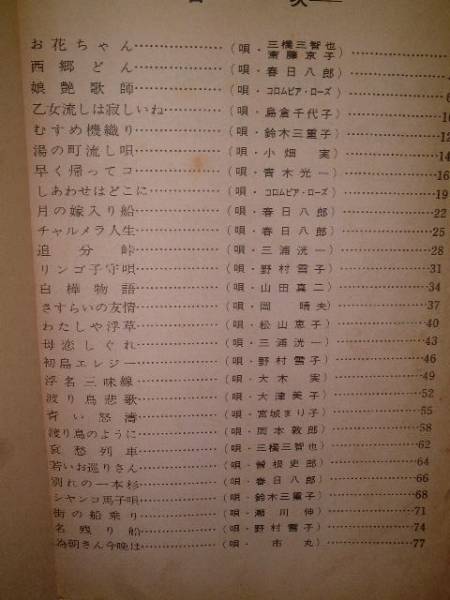 目　次
お花ちゃん…………(唄・三橋三智也 斎藤京子)
西郷どん…………(唄・春日八郎)
娘艶歌師…………(唄・コロムビア・ローズ)
乙女流しは寂しいね…………(唄・島倉千代子)
むすめ機織り…………(唄・鈴木三重子) 12
湯の町流し唄…………(唄・小畑実) 14
早く帰ってコ…………(唄・青木光一) 16
しあわせはどこに…………(唄・コロムビア・ローズ) 19
月の嫁入り船…………(唄・春日八郎) 22
チャルメラ人生…………(唄・春日八郎) 25
追分峠…………(唄・三浦洸一) 28
リンゴ子守唄…………(唄・野村雪子) 31
白樺物語…………(唄・山田真二) 34
さすらいの友情…………(唄・岡晴夫) 37
わたしゃ浮草…………(唄・松山恵子) 40
母恋しぐれ…………(唄・三浦洸一) 43
初島エレジー…………(唄・野村雪子) 46
浮名三味線…………(唄・大木実) 49
渡り鳥悲歌…………(唄・大津美子) 52
青い怒濤…………(唄・宮城まり子) 55
渡り鳥のように…………(唄・岡本敦郎) 58
哀愁列車…………(唄・三橋三智也) 62
若いお巡りさん…………(唄・曽根史郎) 64
別れの一本杉…………(唄・春日八郎) 66
シャンコ馬子唄…………(唄・鈴木三重子) 68
街の船乗り…………(唄・瀬川伸) 71
名残り船…………(唄・野村雪子) 74
為朝さん今晩は…………(唄・市丸) 77